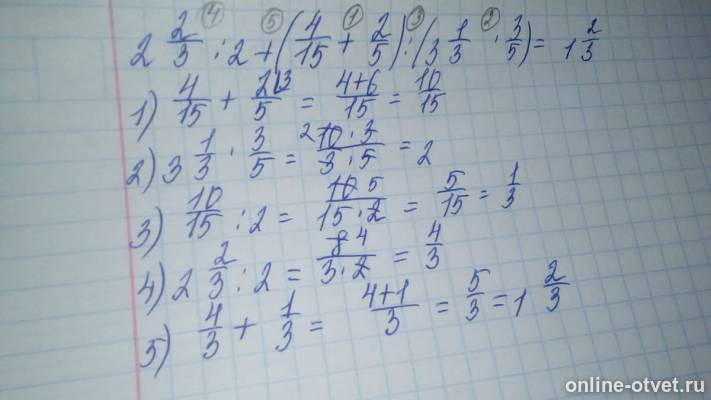 ④ ⑤ ① ③ ②
2 2/3 : 2 + (4/15 + 2/5) : (3 1/3 · 3/5) = 1 2/3
1) 4/15 + 2/5 ⁽³ = 4+6/15 = 10/15
2) 3 1/3 · 3/5 = 2 10·3/3·5 = 2
3) 10/15 : 2 = 10 5/15·2 = 5/15 = 1/3
4) 2 2/3 : 2 = 8 4/3·2 = 4/3
5) 4/3 + 1/3 = 4+1/3 = 5/3 = 1 2/3
online-otvet.ru